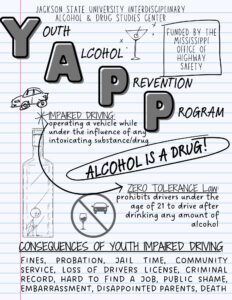 JACKSON STATE UNIVERSITY INTERDISCIPLINARY
ALCOHOL & DRUG STUDIES CENTER
YOUTH
ALCOHOL
PREVENTION
PROGRAM
FUNDED BY THE
MISSISSIPPI
OFFICE OF
HIGHWAY
SAFETY
IMPAIRED DRIVING:
operating a vehicle while
under the influence of any
intoxicating substance/drug
ALCOHOL IS A DRUG!
ZERO TOLERANCE Law
prohibits drivers under the
age of 21 to drive after
drinking any amount of
alcohol
CONSEQUENCES OF YOUTH IMPAIRED DRIVING
FINES, PROBATION, JAIL TIME, COMMUNITY
SERVICE, LOSS OF DRIVERS LICENSE, CRIMINAL
RECORD, HARD TO FIND A JOB, PUBLIC SHAME,
EMBARRASSMENT, DISAPPOINTED PARENTS, DEATH